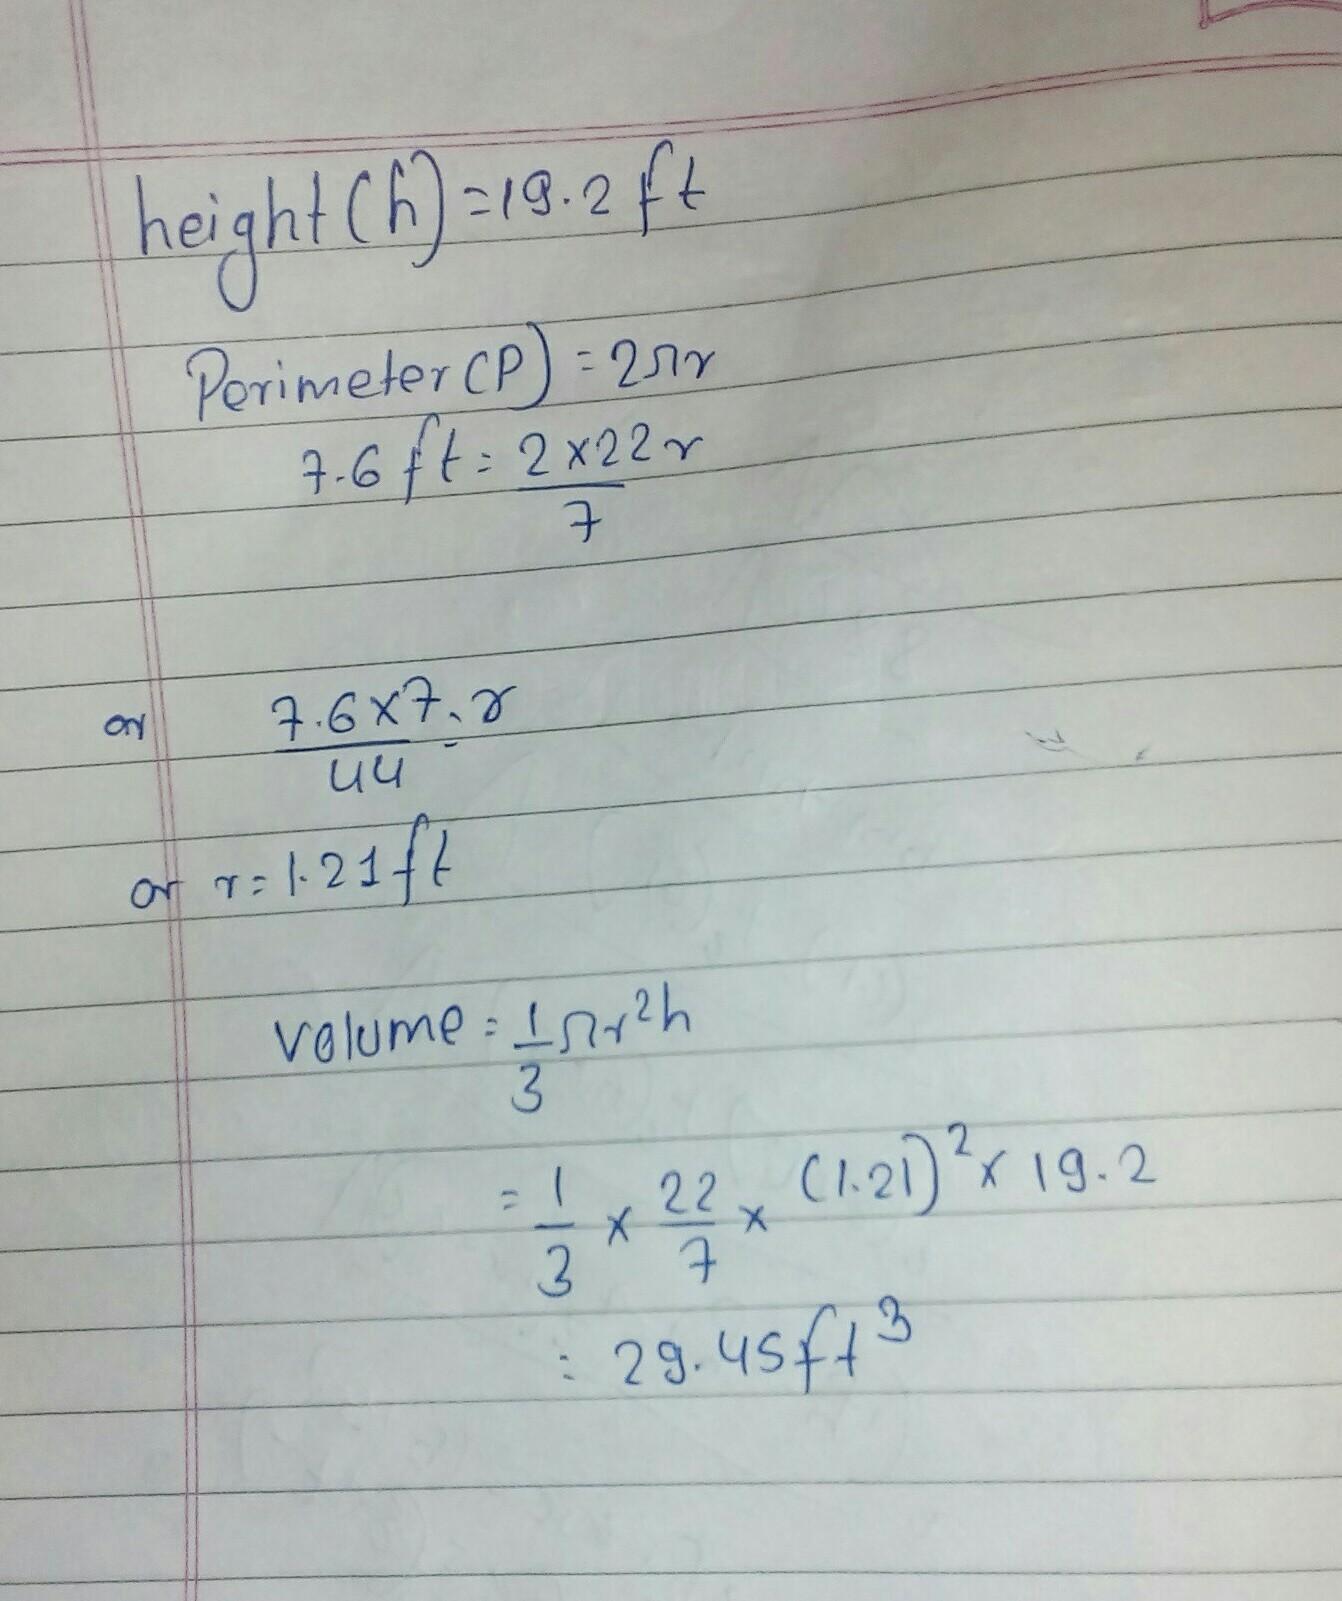 height(h)=19.2 ft
Perimeter(P) = 2πr
7.6 ft = 2×22r/7
or 7.6×7/44 = r
or r=1.21ft
volume = 1/3 πr²h
= 1/3 × 22/7 × (1.21)² × 19.2
= 29.45ft³